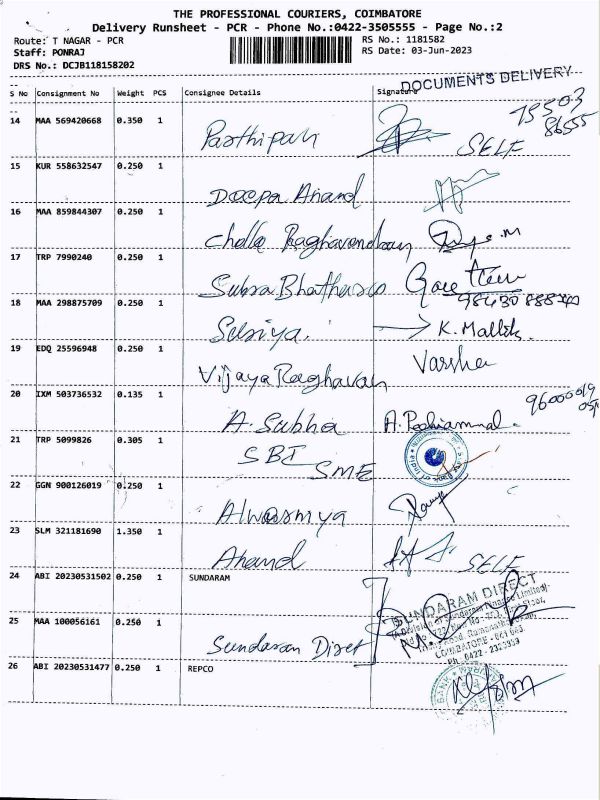 THE PROFESSIONAL COURIERS, COIMBATORE
Delivery Runsheet - PCR - Phone No.:0422-3505555 - Page No.:2
Route: T NAGAR - PCR
RS No.: 1181582
Staff: PONRAJ
RS Date: 03-Jun-2023
DRS No.: DCJB118158202
DOCUMENTS DELIVERY
S No Consignment No Weight PCS Consignee Details Signature
14 MAA 569420668 0.350 1 Parthipan SELF
15 KUR 558632547 0.250 1 Deepa Anand
16 MAA 859844307 0.250 1 Challa Raghavendran
17 TRP 7990240 0.250 1 Subra
18 MAA 298875709 0.250 1 Susiya. K. Mallik
19 EDQ 25596948 0.250 1 Vijaya Raghavan Varsha
20 IXM 503736532 0.135 1 A. Subha
21 TRP 5099826 0.305 1 SBI SME
22 GGN 900126019 0.250 1
23 SLM 321181690 1.350 1 Anand SELF
24 ABI 20230531502 0.250 1 SUNDARAM
SUNDARAM DIRECT
25 MAA 100056161 0.250 1 Sundaran Diret
COIMBATORE
26 ABI 20230531477 0.250 1 REPCO